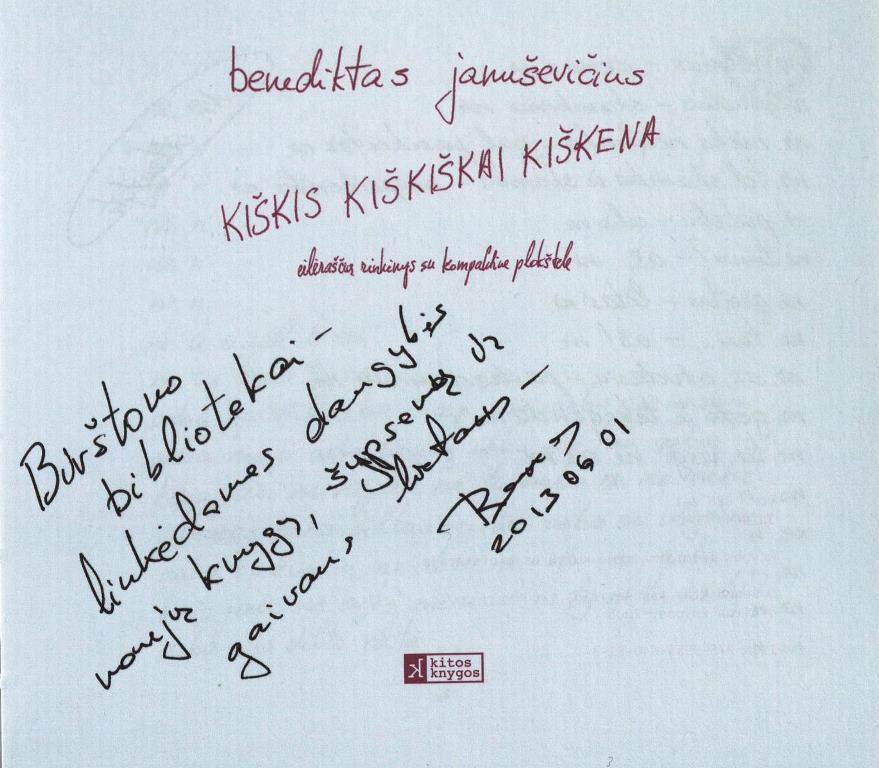 benediktas januševičius
KIŠKIS KIŠKIŠKAI KIŠKENA
eilėraščių rinkinys su kompaktine plokštele
Birštono
bibliotekai –
linkėdamas daugybės
naujų knygų, šypsenų ir
gaivaus lietaus –
2013 06 01
kitos
knygos
3